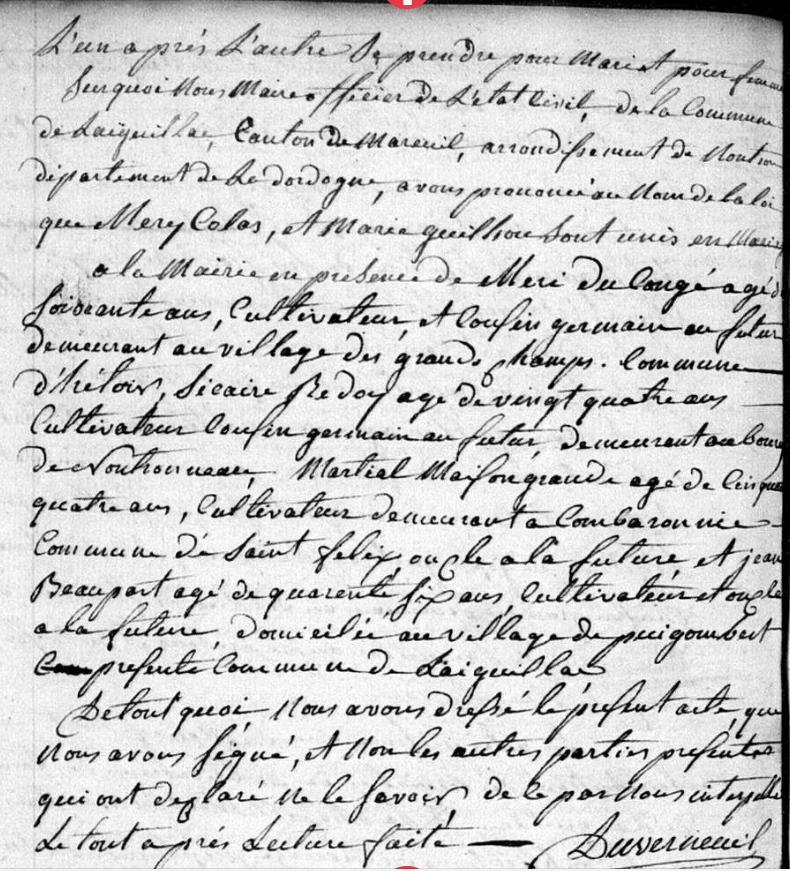 L'un après L'autre Se prendre pour Mari et pour femme
Surquoi Nous Maire officier de L'etat Civil, de la Commune
de Laiguillac, Canton De Mareuil, arrondissement de Nontron
département de Le dordogne, avons prononcé au Nom de la loi
que Mery Colas, et Marie guilhou Sont unis en Mariage
a la Mairie en presence de Meri Du Congé agé de
Soixante ans, Cultivateur, et Cousin germain au futur
demeurant au village des grands Champs. Commune
d', Sicaire Redon agé de vingt quatre ans
Cultivateur Cousin germain au futur, demeurant au bourg
de Nontronneau, Martial Maisongrande agé de Cinquante
quatre ans, Cultivateur demeurant a Combaronnie
Commune de Saint felix, oncle a la future et jean
Beaupart agé de quarente six ans, Cultivateur et oncle
a la future, Domicilié au village de puigombert
presente Commune de Laiguillac
De tout quoi, Nous avons dressé le présent acte, que
Nous avons signé, et Non les autres parties presentes
qui ont declaré Ne le savoir de ce par Nous interpellé
Le tout après Lecture faite — Duverneuil